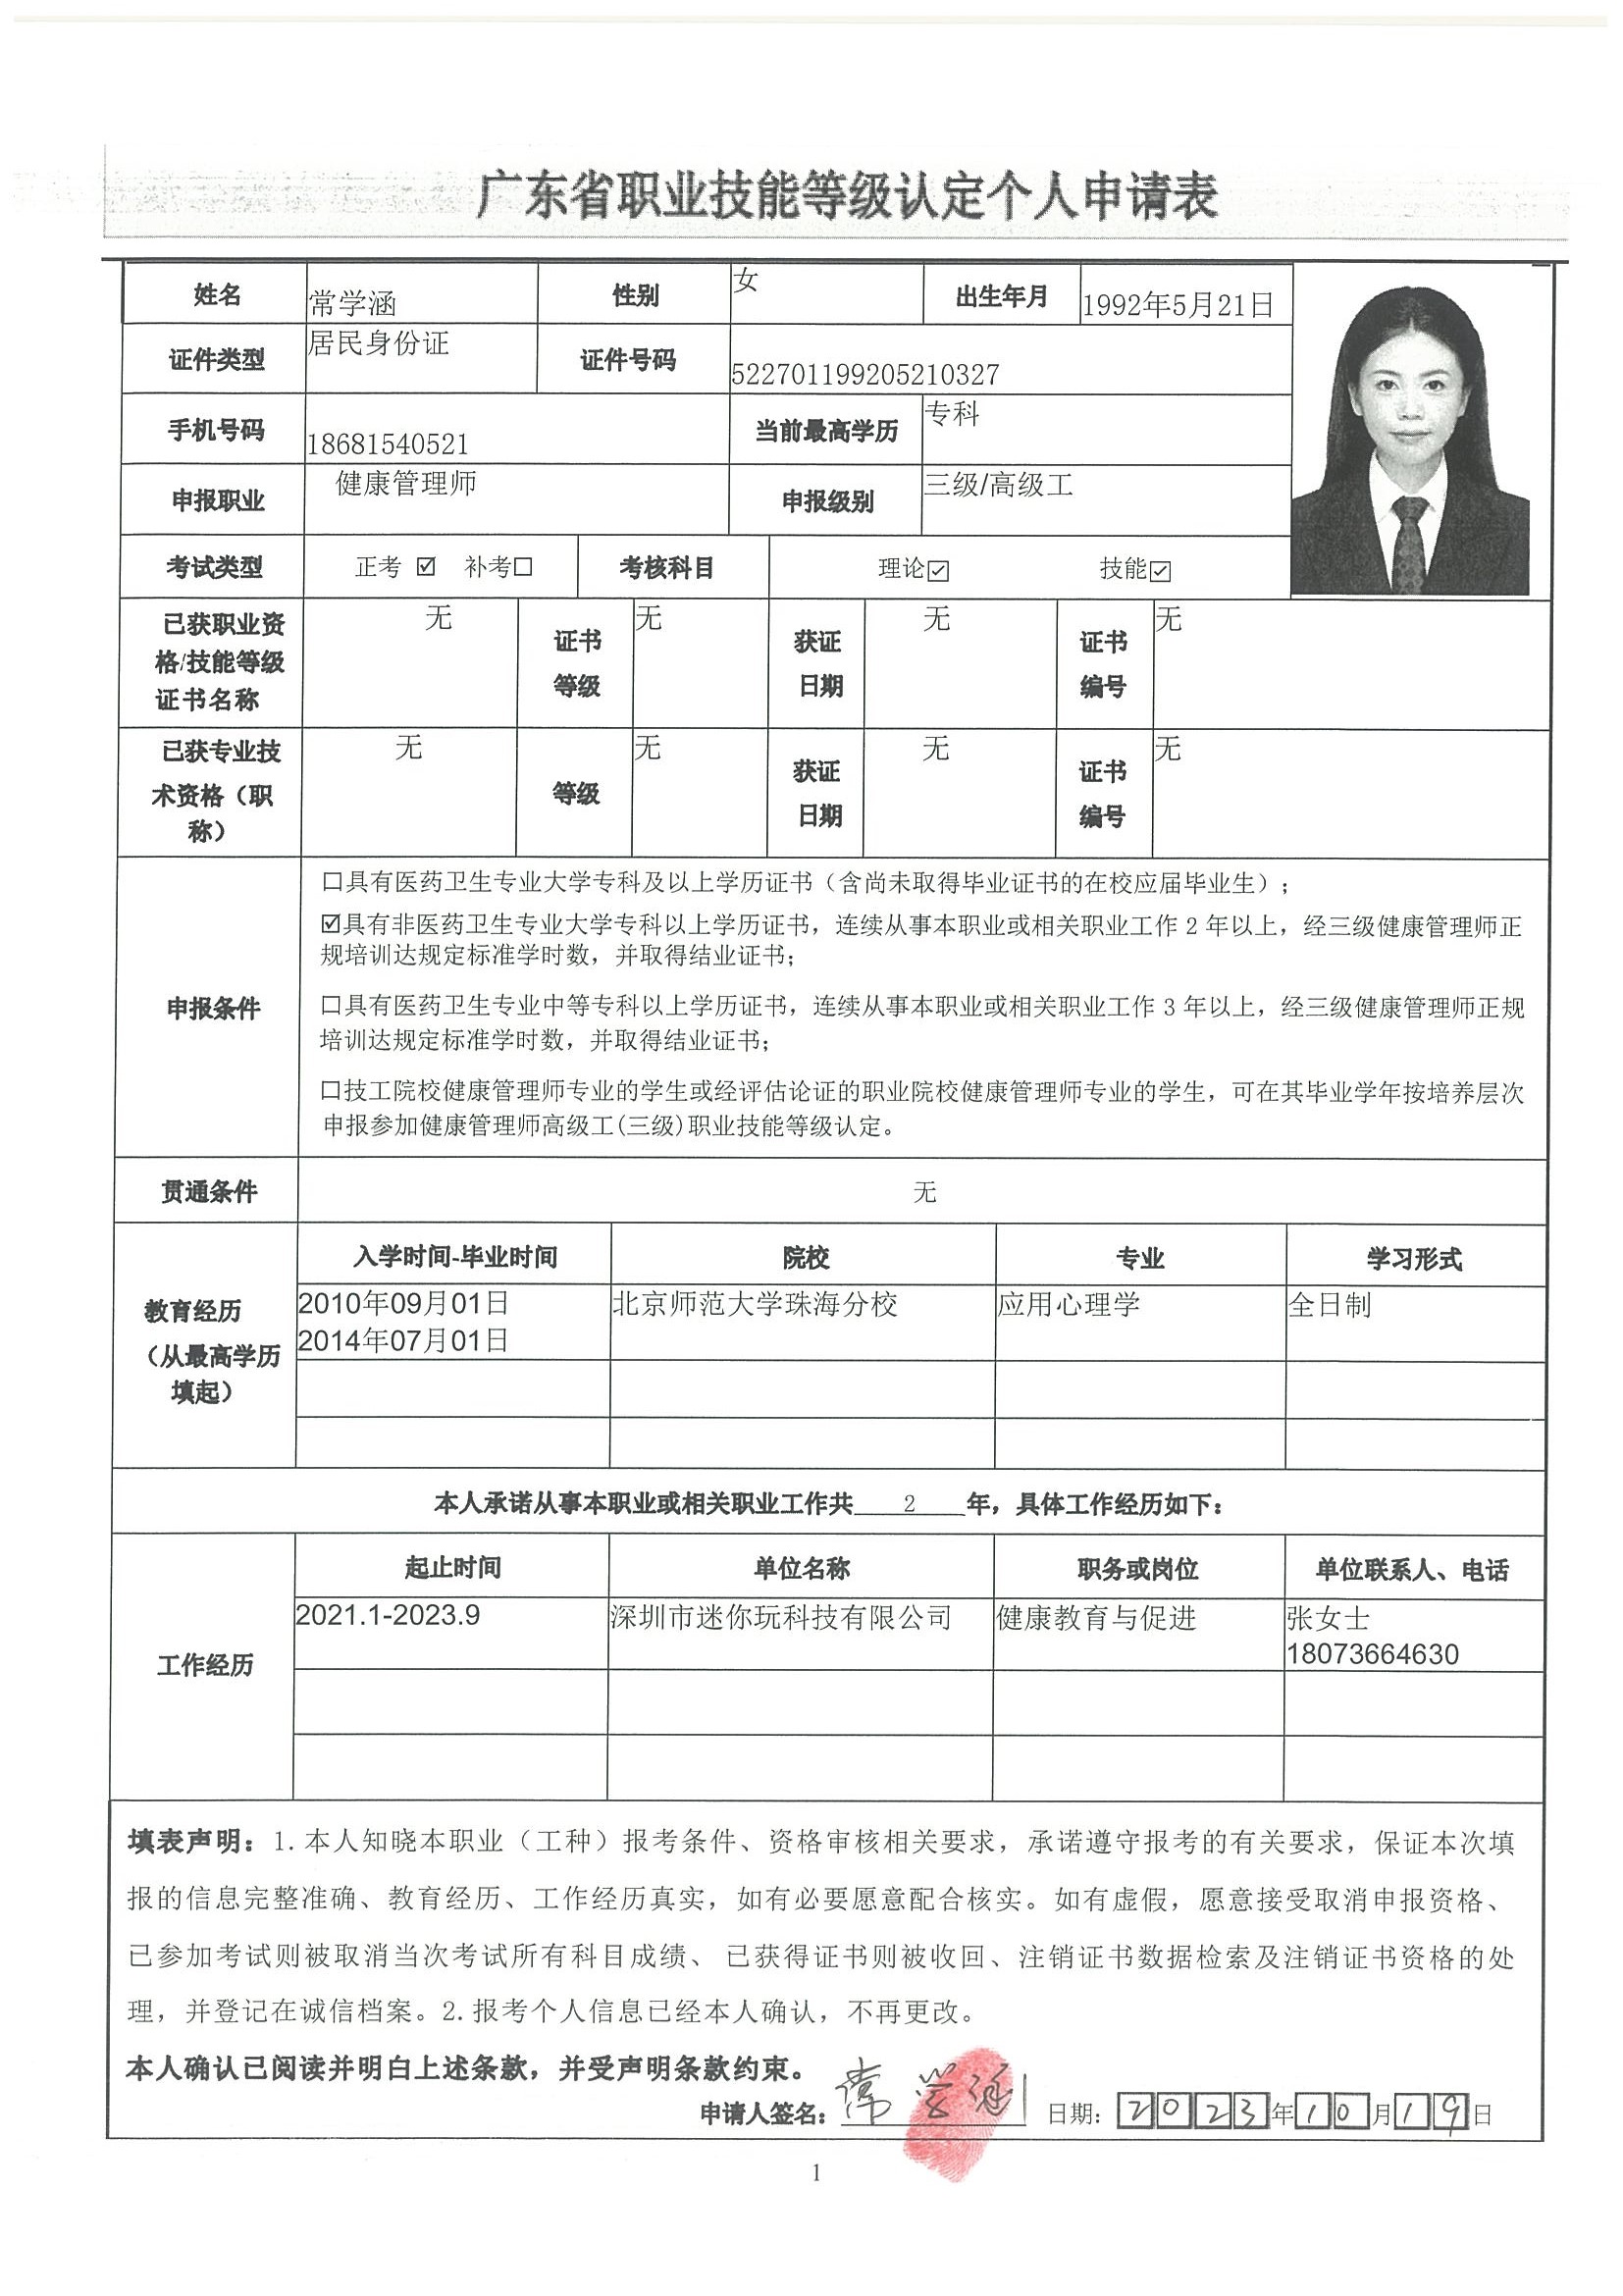 广东省职业技能等级认定个人申请表
姓名 常学涵 性别 女 出生年月 1992年5月21日
证件类型 居民身份证 证件号码 522701199205210327
手机号码 18681540521 当前最高学历 专科
申报职业 健康管理师 申报级别 三级/高级工
考试类型 正考 ☑ 补考□ 考核科目 理论☑ 技能☑
已获职业资格/技能等级证书名称 无 证书等级 无 获证日期 无 证书编号 无
已获专业技术资格（职称） 无 等级 无 获证日期 无 证书编号 无
申报条件
□具有医药卫生专业大学专科及以上学历证书（含尚未取得毕业证书的在校应届毕业生）；
☑具有非医药卫生专业大学专科以上学历证书，连续从事本职业或相关职业工作 2 年以上，经三级健康管理师正
规培训达规定标准学时数，并取得结业证书；
□具有医药卫生专业中等专科以上学历证书，连续从事本职业或相关职业工作 3 年以上，经三级健康管理师正规
培训达规定标准学时数，并取得结业证书；
□技工院校健康管理师专业的学生或经评估论证的职业院校健康管理师专业的学生，可在其毕业学年按培养层次
申报参加健康管理师高级工(三级)职业技能等级认定。
贯通条件 无
教育经历
（从最高学历
填起）
入学时间-毕业时间 院校 专业 学习形式
2010年09月01日 北京师范大学珠海分校 应用心理学 全日制
2014年07月01日
本人承诺从事本职业或相关职业工作共 2 年，具体工作经历如下：
工作经历
起止时间 单位名称 职务或岗位 单位联系人、电话
2021.1-2023.9 深圳市迷你玩科技有限公司 健康教育与促进 张女士
18073664630
填表声明：1.本人知晓本职业（工种）报考条件、资格审核相关要求，承诺遵守报考的有关要求，保证本次填
报的信息完整准确、教育经历、工作经历真实，如有必要愿意配合核实。如有虚假，愿意接受取消申报资格、
已参加考试则被取消当次考试所有科目成绩、 已获得证书则被收回、注销证书数据检索及注销证书资格的处
理，并登记在诚信档案。2.报考个人信息已经本人确认，不再更改。
本人确认已阅读并明白上述条款，并受声明条款约束。
申请人签名：常学涵 日期：2023年10月19日
1